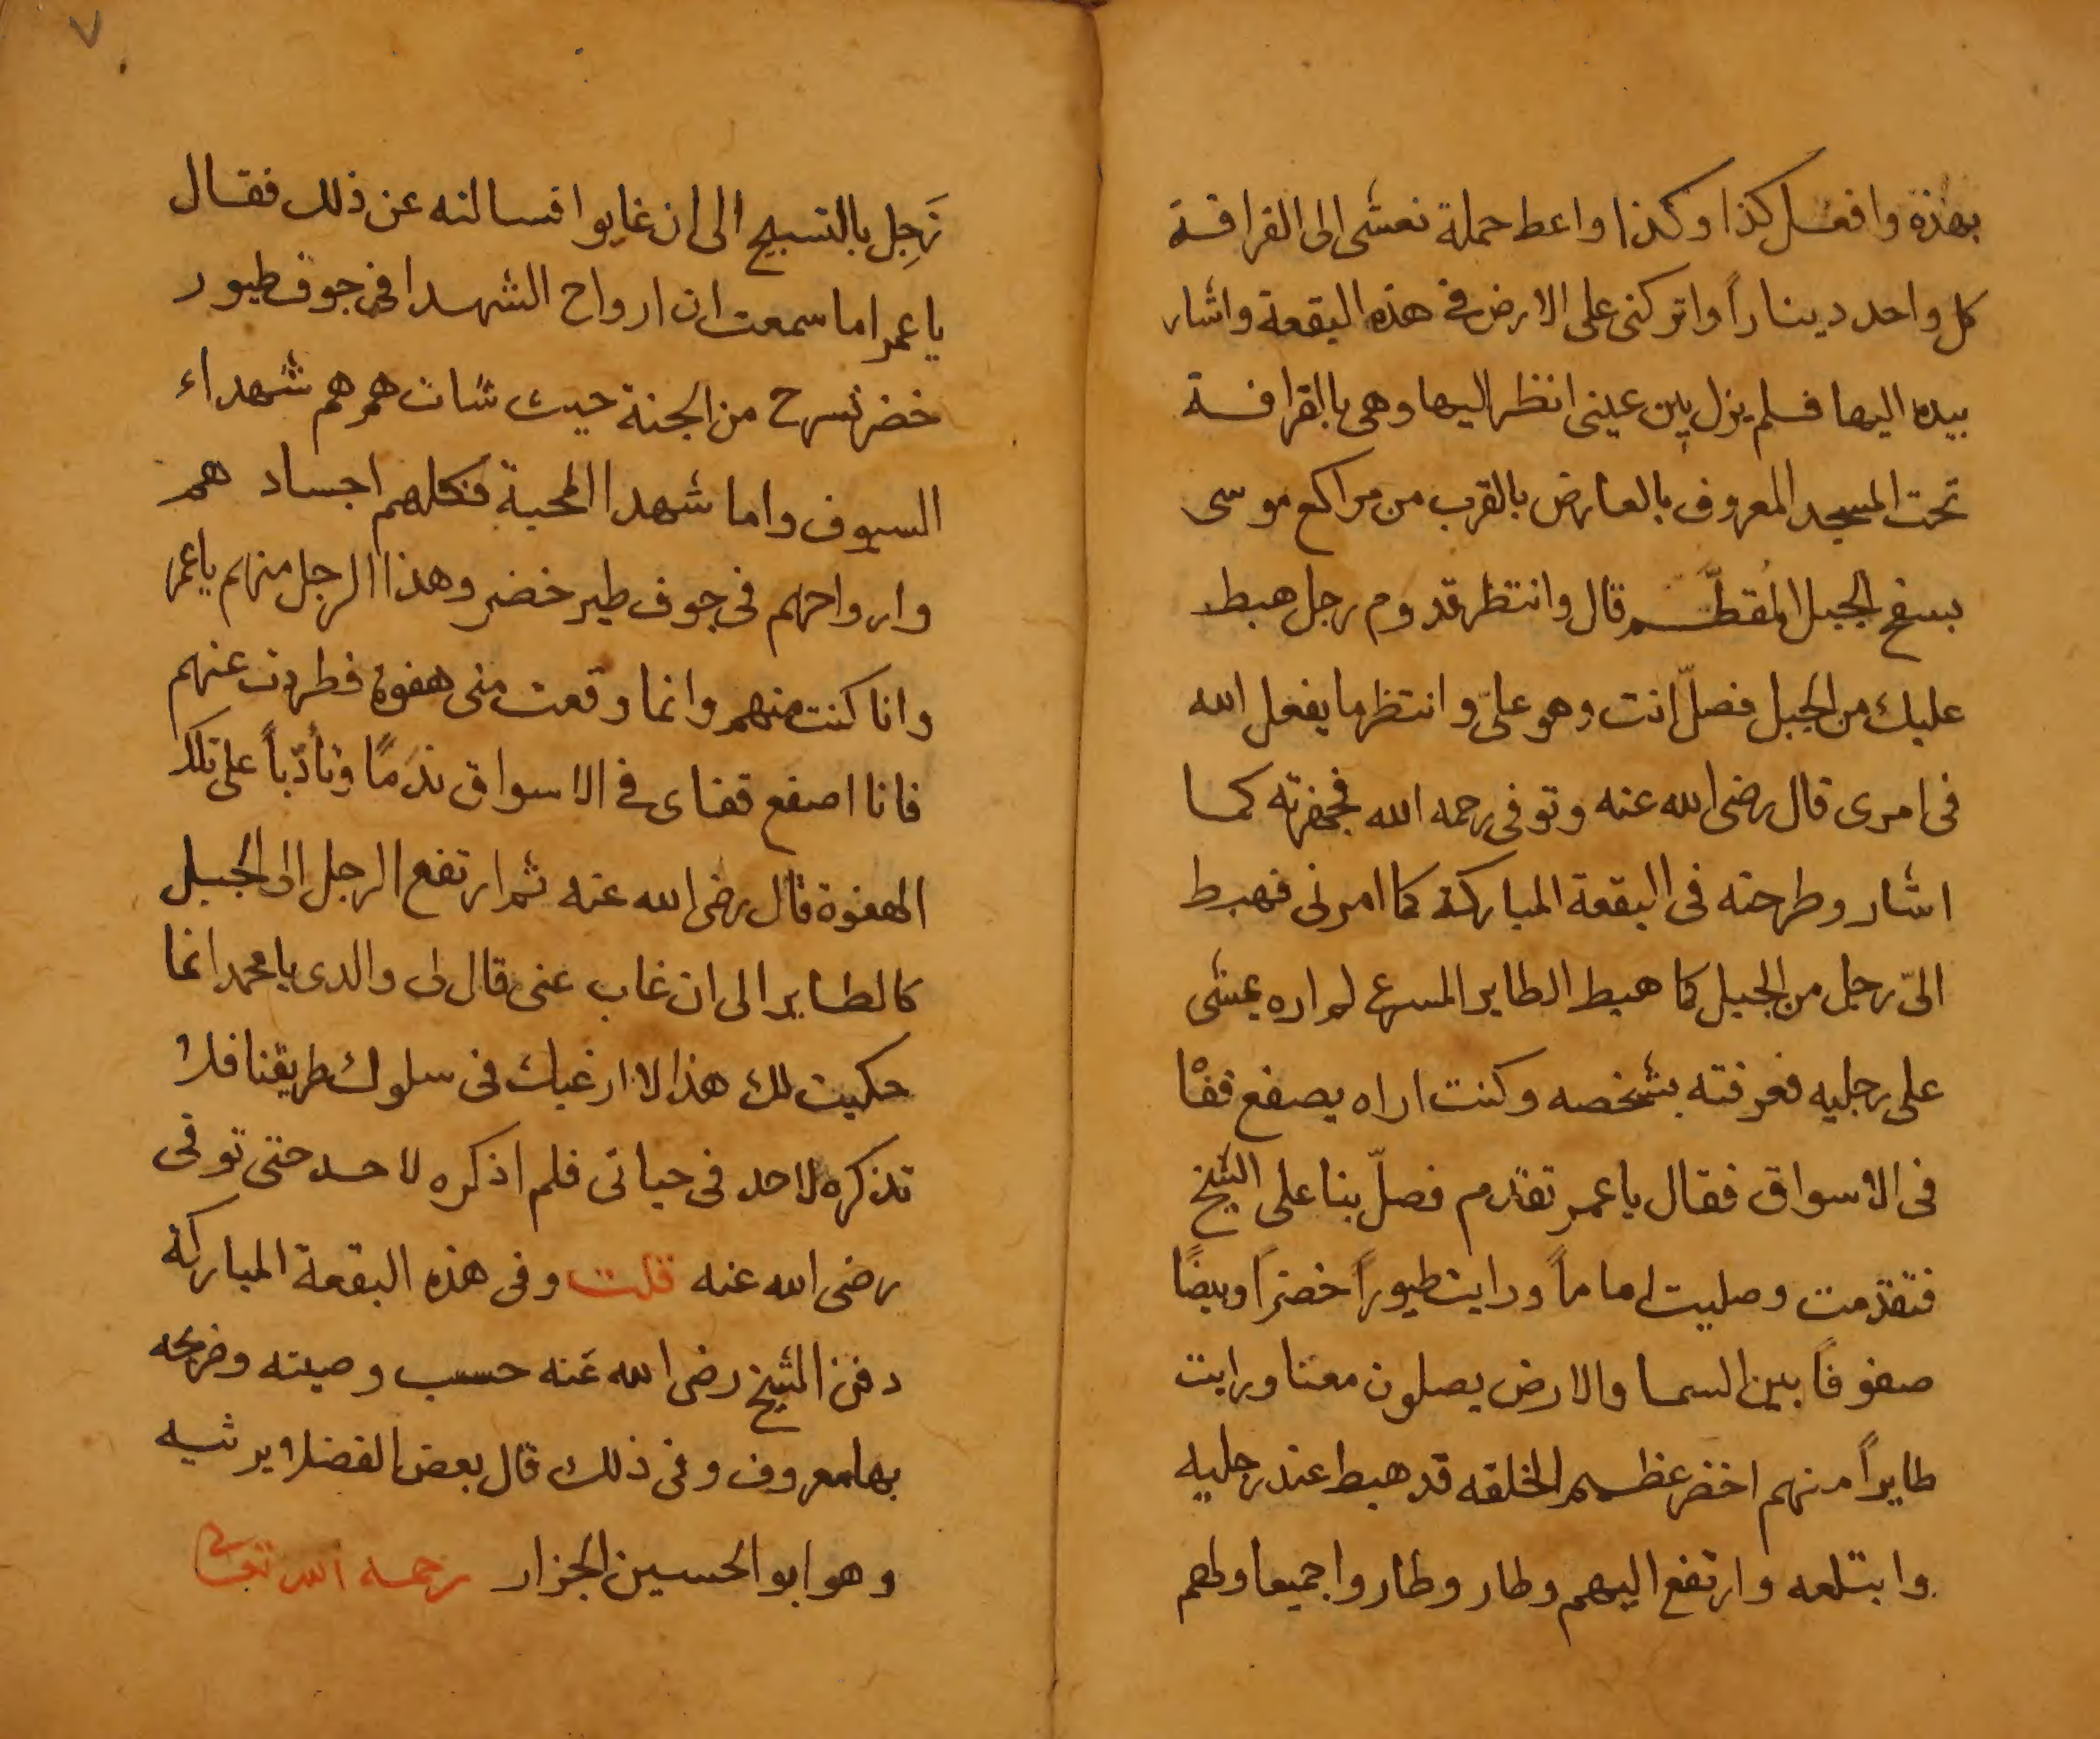 بهذه وافعل كذا وكذا واعط حملة نعشى الى القرافة
كل واحد ديناراً واتركنى على الارض فى هذه البقعة واشار
بيده اليها فلم يزل بين عينى انظر اليها وهى بالقرافة
تحت المسجد المعروف بالعارض بالقرب من مراكع موسى
بسفح الجبل المُقطّم قال وانتظر قدوم رجل هبط
عليك من الجبل فصلّ انت وهو علىّ وانتظر ما يفعل الله
فى امرى قال رضى الله عنه وتوفى رحمه الله فجهزته كما
اشار وطرحته فى البقعة المباركة كما امرنى فهبط
الىّ رجل من الجبل كما هبط الطاير المسرع لم اره يمشى
على رجليه فعرفته بشخصه وكنت اراه يصفع قفا
فى الاسواق فقال يا عمر تقدم فصلّ بنا على الشيخ
فتقدمت وصليت اماماً ورايت طيوراً خضراً وبيضًا
صفوفاً بين السما والارض يصلون معنا ورايت
طايراً منهم اخضر عظيم الخلقه قد هبط عند رجليه
وابتلعه وارتفع اليهم وطار وطاروا جميعا ولهم
زَجِل بالتسبيح الى ان غابوا فسالته عن ذلك فقال
يا عمر اما سمعت ان ارواح الشهدا فى جوف طيور
خضر تسرح من الجنة حيث شات هم هم شهداء
السيوف واما شهدا المحبة فكلهم اجسادهم
وارواحهم فى جوف طير خضر وهذا الرجل منهم يا عمر
وانا كنت منهم وانما وقعت منى هفوة فطردت عنهم
فانا اصفع قفاى فى الاسواق ندمًا وتأدّباً على تلك
الهفوة قال رضى الله عنه ثم ارتفع الرجل الى الجبل
كالطاير الى ان غاب عنى قال لى والدى يا محمد انما
حكيت لك هذا لا ارغبك فى سلوك طريقنا فلا
تذكره لاحد فى حياتى فلم اذكره لاحد حتى توفى
رضى الله عنه قلت وفى هذه البقعة المباركة
دفن الشيخ رضى الله عنه حسب وصيته وضريحه
بها معروف وفى ذلك قال بعض الفضلا يرثيه
وهو ابو الحسين الجزار رحمه الله تعالى
٧